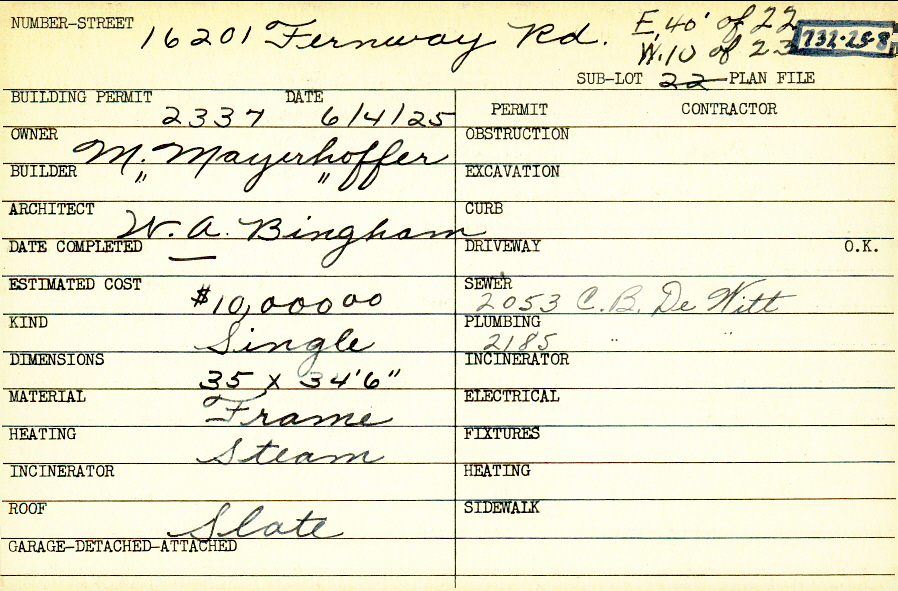 NUMBER-STREET 16201 Fernway Rd. E. 40' of 22
W. 10 of 23 732-25-8
SUB-LOT 22 PLAN FILE
BUILDING PERMIT 2337 DATE 6/4/25
OWNER M. Mayerhoffer
BUILDER " "
ARCHITECT W. A. Bingham
DATE COMPLETED —
ESTIMATED COST $10,000 00
KIND Single
DIMENSIONS 35 x 34'6"
MATERIAL Frame
HEATING Steam
INCINERATOR
ROOF Slate
GARAGE-DETACHED-ATTACHED
PERMIT CONTRACTOR
OBSTRUCTION
EXCAVATION
CURB
DRIVEWAY O.K.
SEWER 2053 C. B. De Witt
PLUMBING 2185 " "
INCINERATOR
ELECTRICAL
FIXTURES
HEATING
SIDEWALK